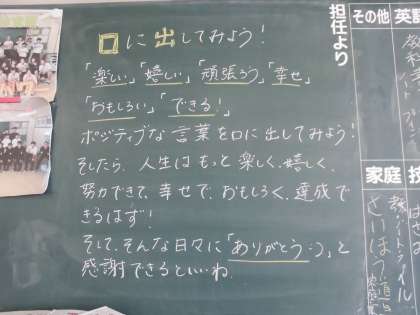 口に出してみよう!
「楽しい」「嬉しい」「頑張ろう」「幸せ」
「おもしろい」「できる!」
ポジティブな言葉を口に出してみよう!
そしたら、人生はもっと楽しく、嬉しく、
努力できて、幸せで、おもしろく、達成で
きるはず!
そして、そんな日々に「ありがとう:)」と
感謝できるといいね
担任より
その他
英語
家庭
技
さいほう道具